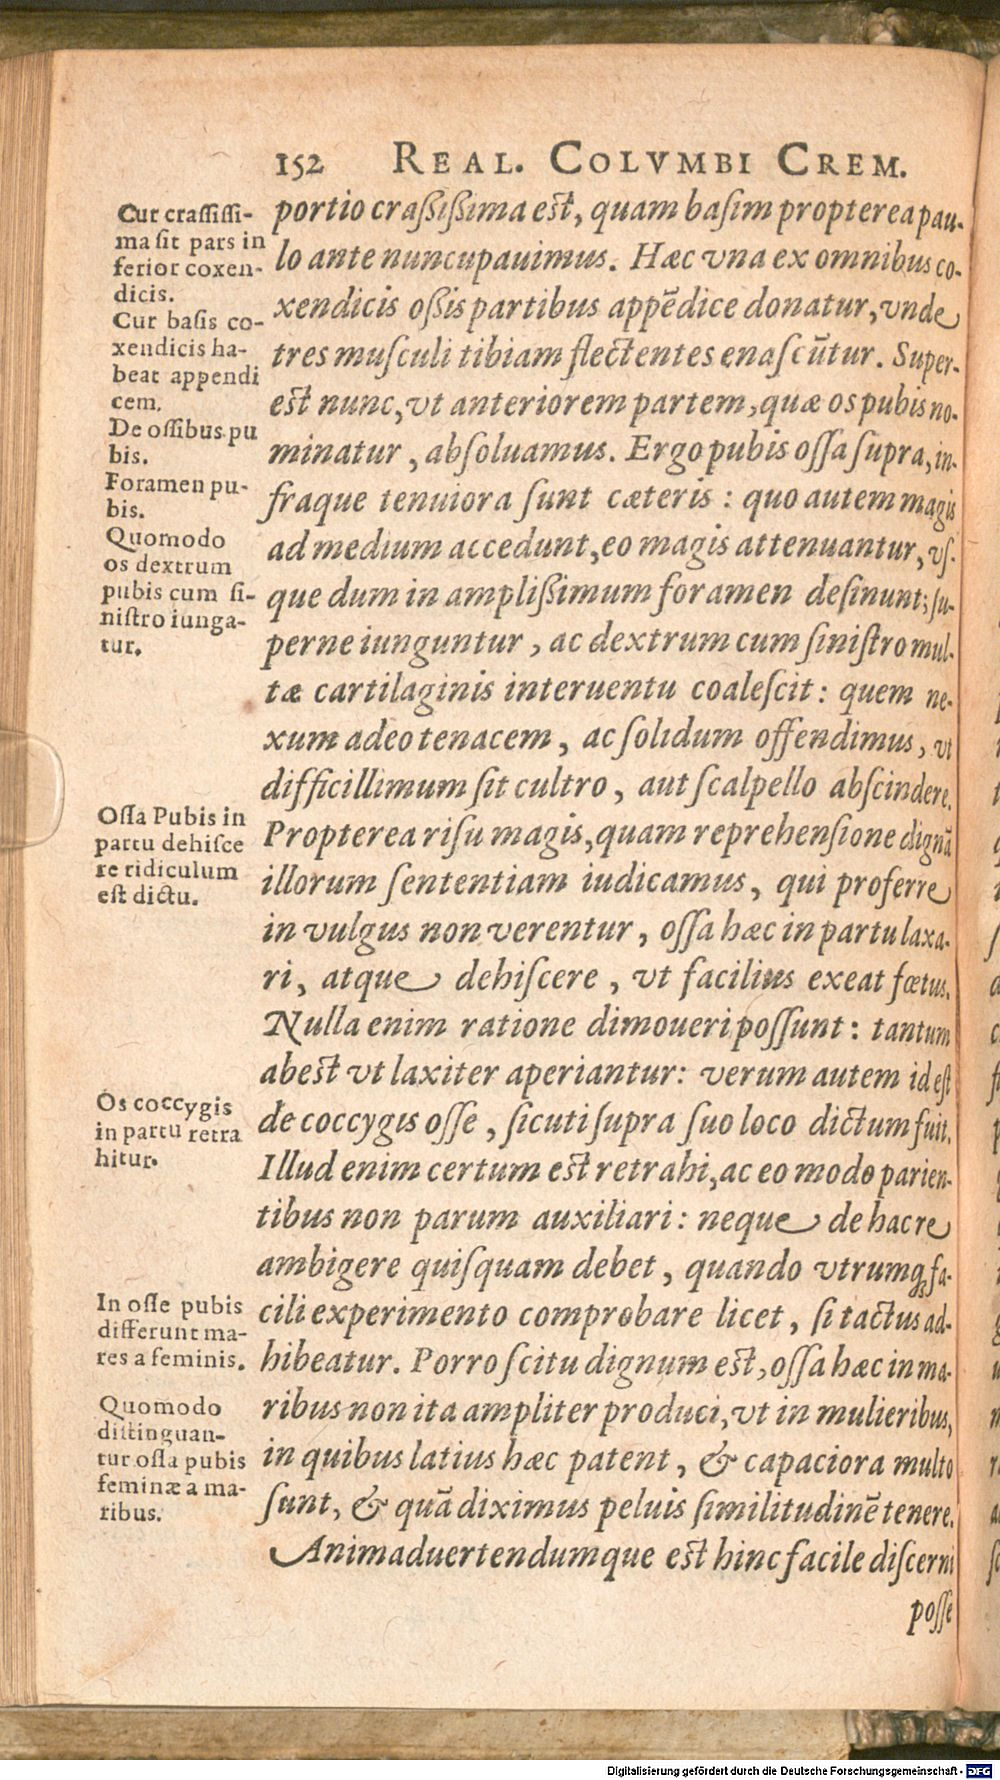 152 REAL. COLVMBI CREM.
Cur crassissi-
ma sit pars in
ferior coxen-
dicis.
Cur basis co-
xendicis ha-
beat appendi
cem.
De ossibus pu
bis.
Foramen pu-
bis.
Quomodo
os dextrum
pubis cum si-
nistro iunga-
tur.
Ossa Pubis in
partu dehisce
re ridiculum
est dictu.
Os coccygis
in partu retra
hitur.
In osse pubis
differunt ma-
res a feminis.
Quomodo
distinguan-
tur ossa pubis
feminæ a ma-
ribus.
portio craßißima est, quam basim propterea pau-
lo ante nuncupauimus. Hæc vna ex omnibus co-
xendicis oßis partibus appēdice donatur, vnde
tres musculi tibiam flectentes enascūtur. Super-
est nunc, vt anteriorem partem, quæ os pubis no-
minatur, absoluamus. Ergo pubis ossa supra, in-
fraque tenuiora sunt cæteris: quo autem magis
ad medium accedunt, eo magis attenuantur, vs-
que dum in amplißimum foramen desinunt; su-
perne iunguntur, ac dextrum cum sinistro mul-
tæ cartilaginis interuentu coalescit: quem ne-
xum adeo tenacem, ac solidum offendimus, vt
difficillimum sit cultro, aut scalpello abscindere.
Propterea risu magis, quam reprehensione dignā
illorum sententiam iudicamus, qui proferre
in vulgus non verentur, ossa hæc in partu laxa-
ri, atque dehiscere, vt facilius exeat fœtus.
Nulla enim ratione dimoueri possunt: tantum
abest vt laxiter aperiantur: verum autem id est
de coccygis osse, sicuti supra suo loco dictum fuit.
Illud enim certum est retrahi, ac eo modo parien-
tibus non parum auxiliari: neque de hac re
ambigere quisquam debet, quando vtrumq; fa-
cili experimento comprobare licet, si tactus ad-
hibeatur. Porro scitu dignum est, ossa hæc in ma-
ribus non ita ampliter produci, vt in mulieribus,
in quibus latius hæc patent, & capaciora multo
sunt, & quā diximus peluis similitudinē tenere.
Animaduertendumque est hinc facile discerni
posse
Digitalisierung gefördert durch die Deutsche Forschungsgemeinschaft - DFG